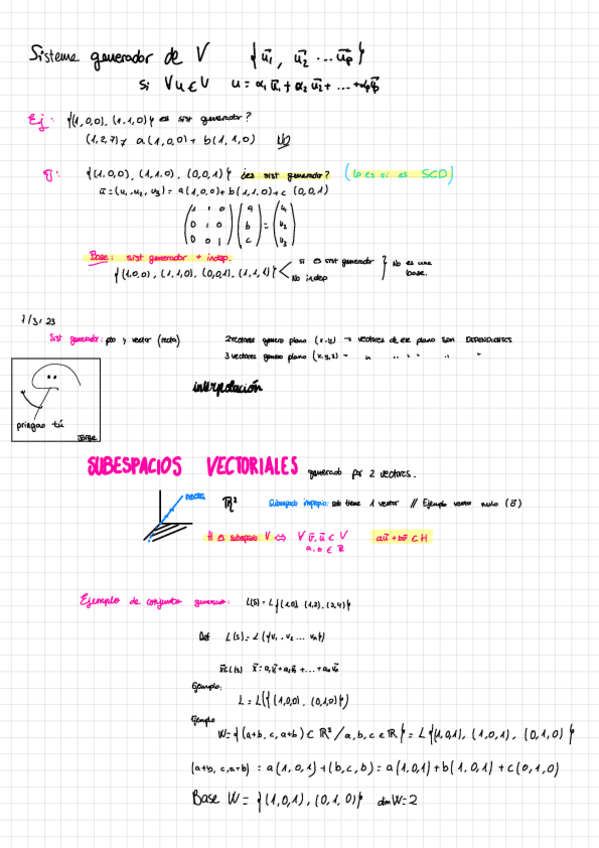 Sisteme generador de V {u⃗1, u⃗2 ... u⃗p}
Si ∀u∈V u = α1 u⃗1 + α2 u⃗2 + ... + αp u⃗p
Ej: {(1,0,0), (1,1,0)} es sist generador?
(1,2,7) ≠ a(1,0,0) + b(1,1,0) NO
{(1,0,0), (1,1,0), (0,0,1)} ¿es sist generador? (lo es si es SCD)
u⃗ = (u1, u2, u3) = a(1,0,0) + b(1,1,0) + c(0,0,1)
(1 1 0) (a) (u1)
(0 1 0) (b) = (u2)
(0 0 1) (c) (u3)
Base: sist generador + indep.
{(1,0,0), (1,1,0), (0,0,1), (1,1,1)} < si es sist generador } No es una
No indep base.
7/3/23
Sist generador: pto y vector (recta) 2 vectores genero plano (x,y) → vectores de ese plano son DEPENDIENTES
3 vectores genero plano (x,y,z) → " " " " "
interpolación
pringao tú
JORGE
SUBESPACIOS VECTORIALES generado por 2 vectores.
recta ℝ³ Subespacio impropio: solo tiene 1 vector // Ejemplo vector nulo (0⃗)
H es subespacio V ⇔ ∀ v⃗, u⃗ ⊂ V au⃗ + bv⃗ ⊂ H
a, b ∈ ℝ
Ejemplo de conjunto generado: L(S) = L{(1,0), (1,2), (3,4)}
Def L(S) = L({v1, v2 ... vn})
x⃗⊂L(s) x⃗ = a1v⃗1 + a2v⃗2 + ... + anv⃗n
Ejemplo:
L = L({(1,0,0), (0,1,0)})
Ejemplo
W = {(a+b, c, a+b) ⊂ ℝ³ / a, b, c ∈ ℝ} = L{(1,0,1), (1,0,1), (0,1,0)}
(a+b, c, a+b) = a(1,0,1) + (b,c,b) = a(1,0,1) + b(1,0,1) + c(0,1,0)
Base W = {(1,0,1), (0,1,0)} dim W = 2